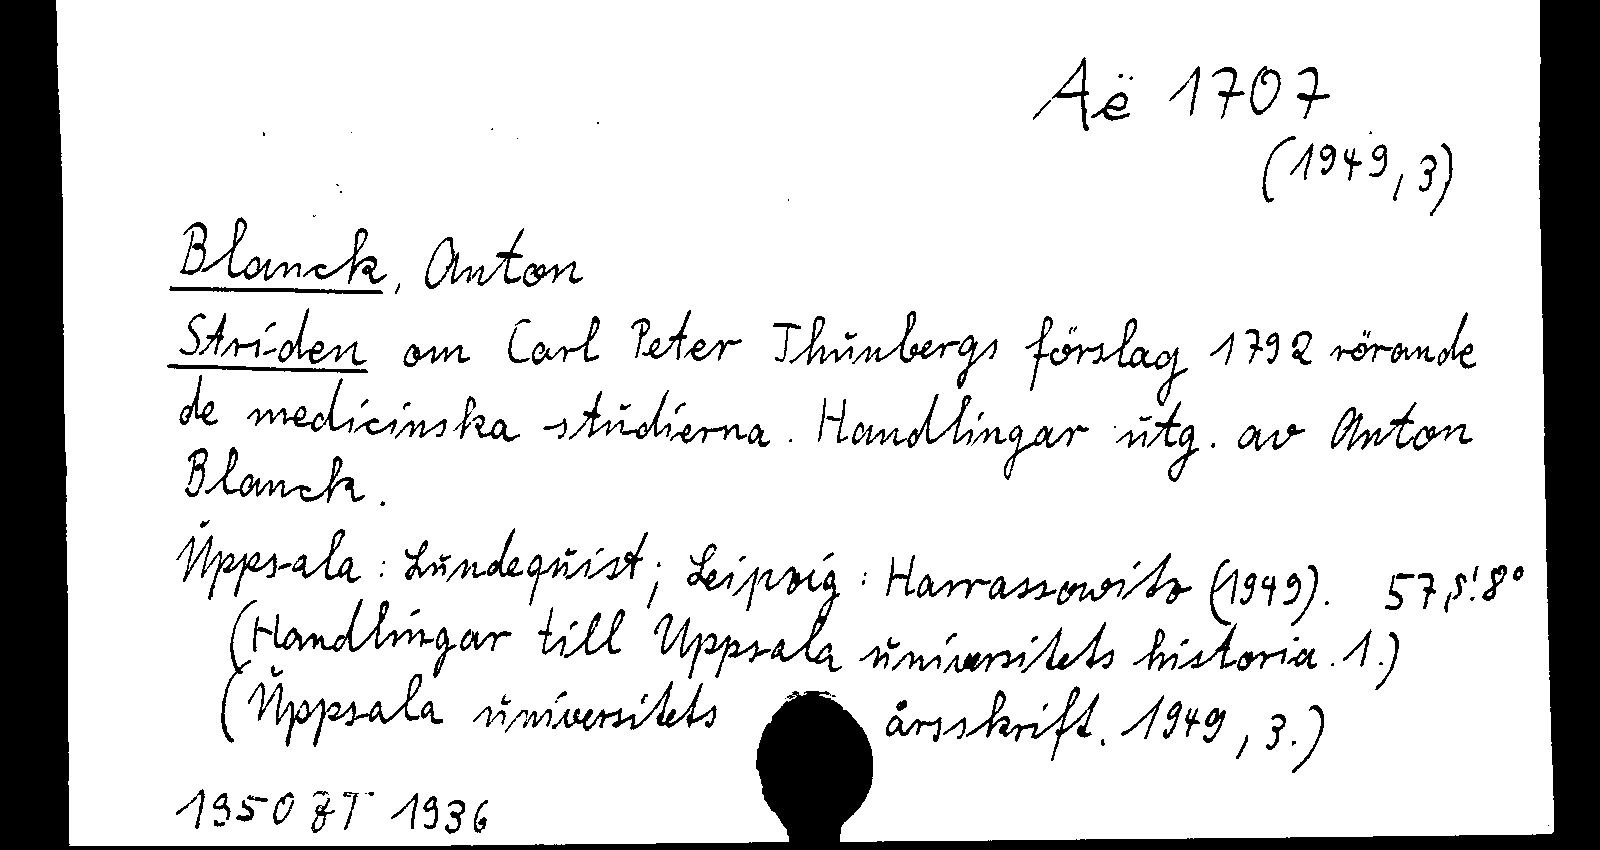 Aë 1707
(1949, 3)
Blanck, Anton
Striden om Carl Peter Thunbergs förslag 1792 rörande
de medicinska studierna. Handlingar utg. av Anton
Blanck.
Uppsala: Lundequist; Leipzig: Harrassowitz (1949). 57 S. 8°
(Handlingar till Uppsala universitets historia. 1.)
(Uppsala universitets årsskrift. 1949, 3.)
1950 ZT 1936